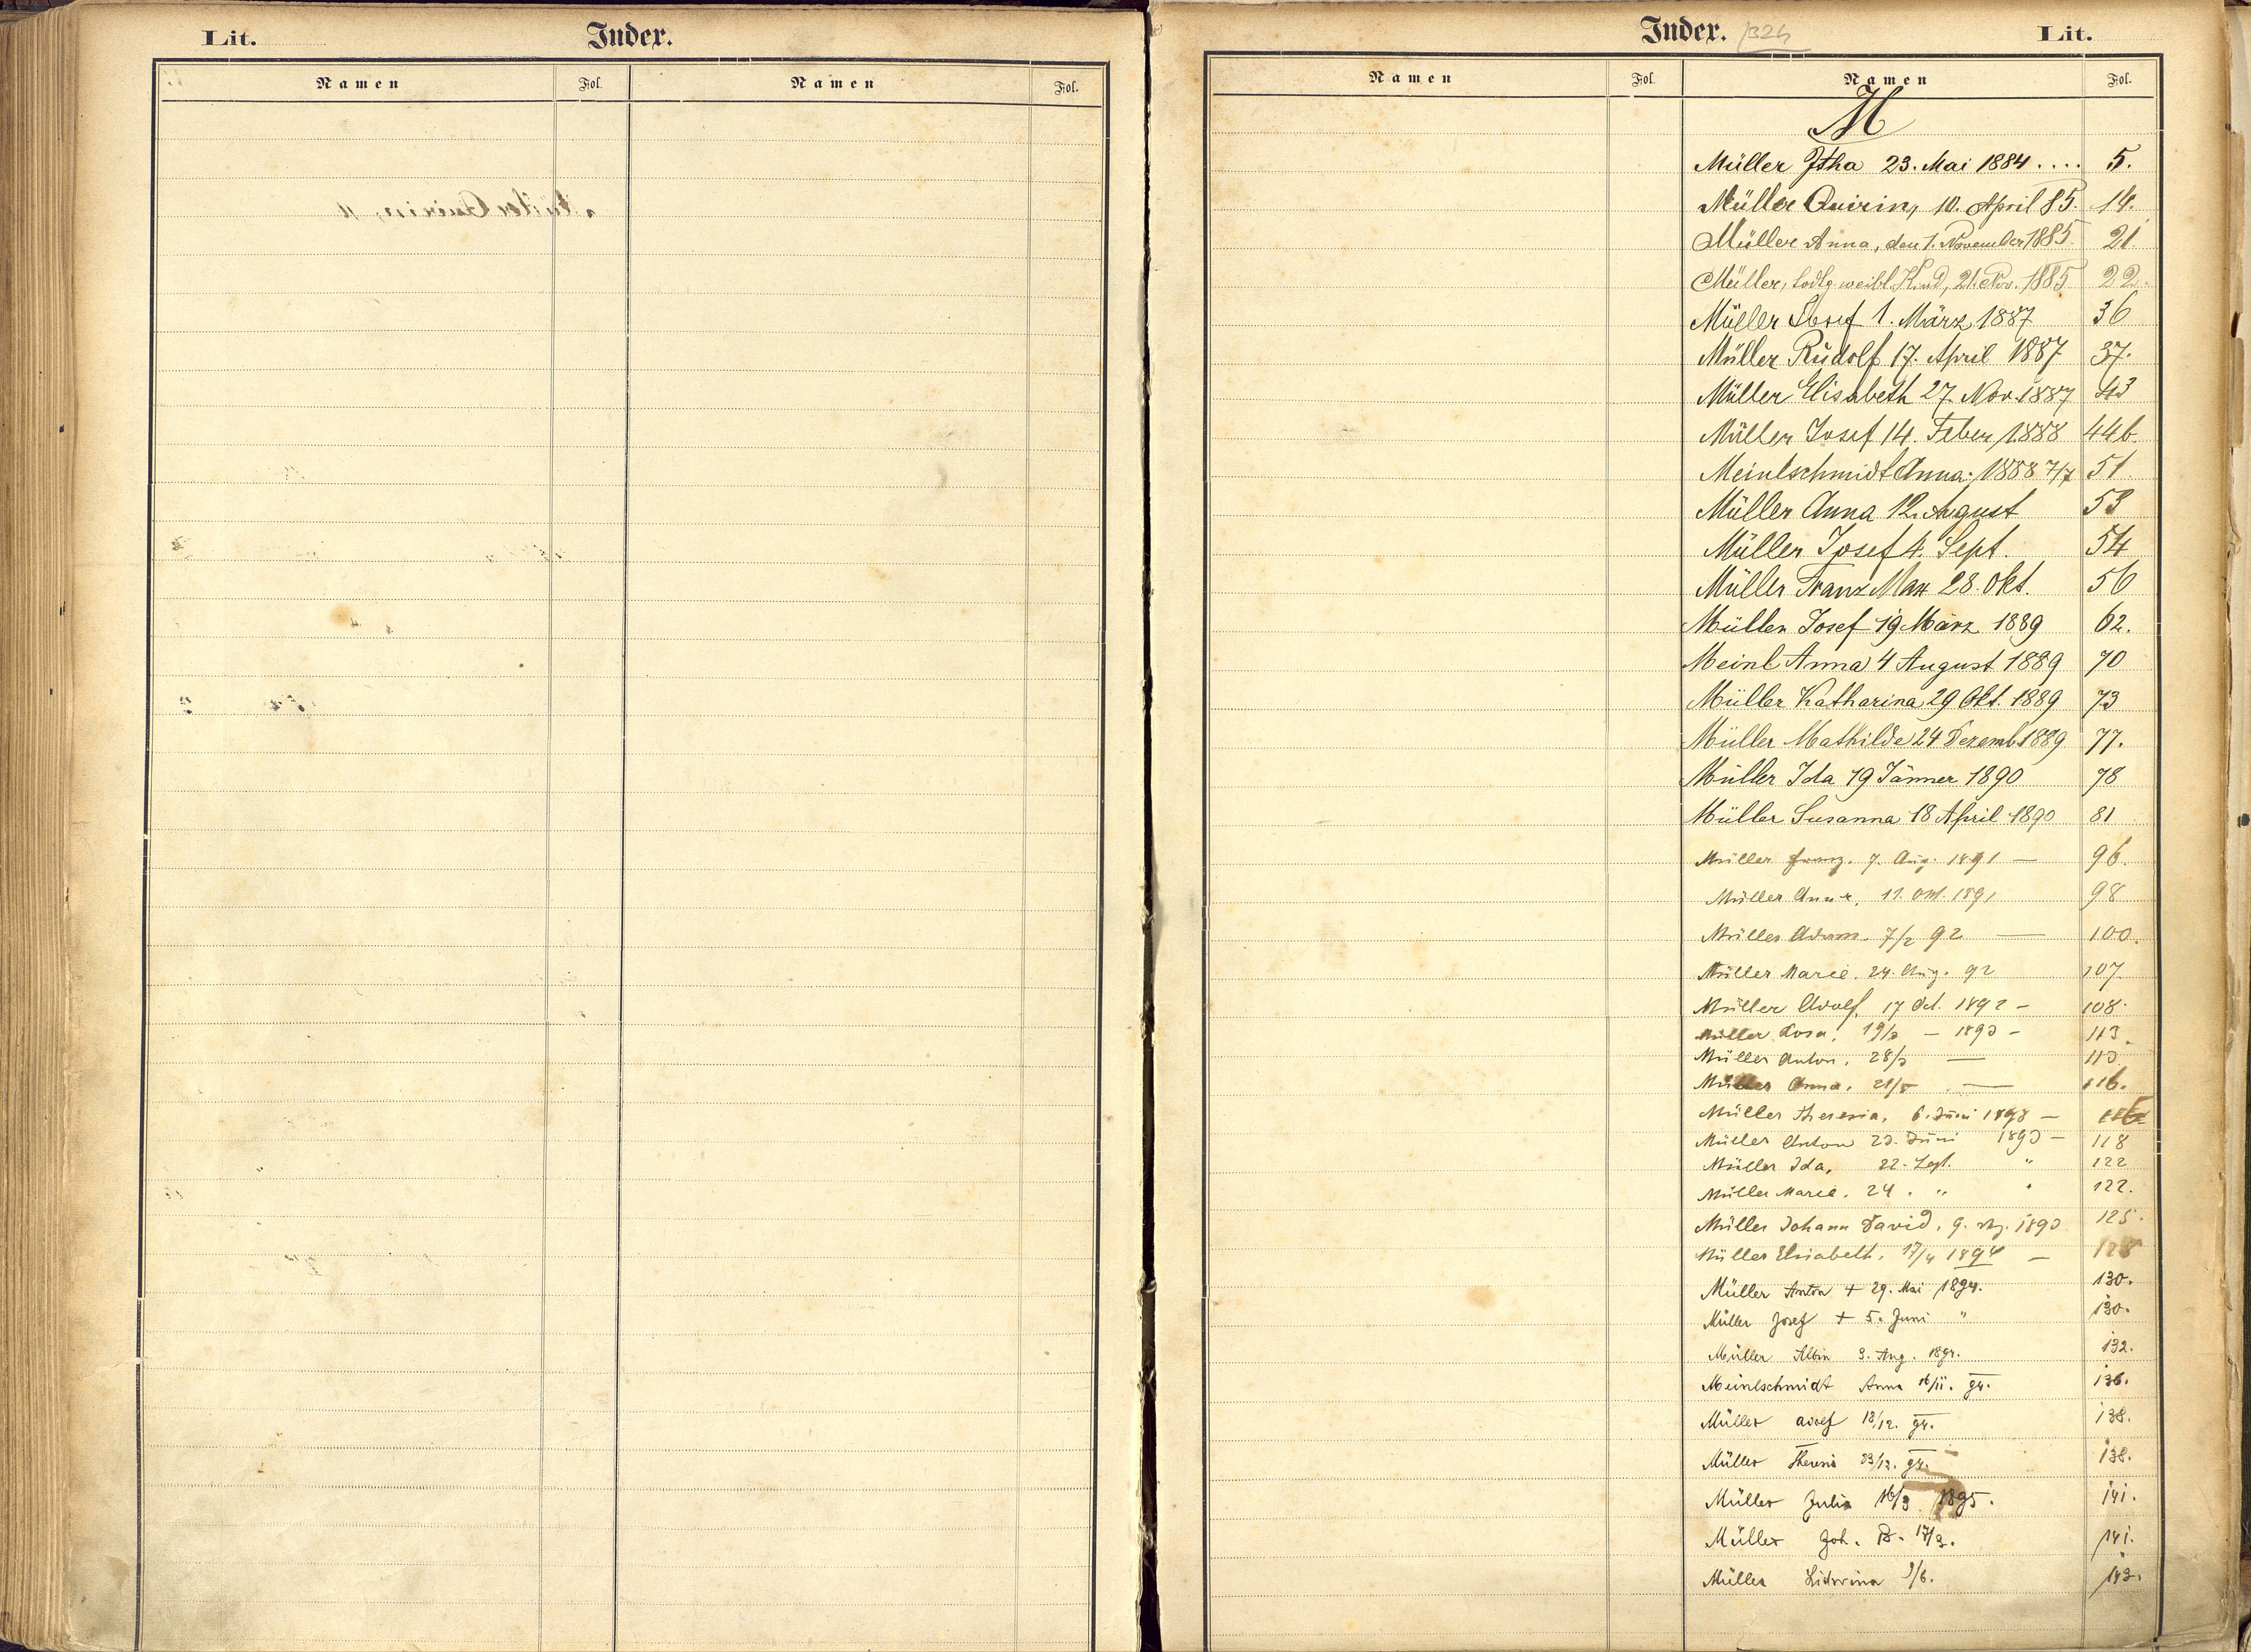 Lit. Index.
Namen Fol. Namen Fol.
Index. Lit.
Namen Fol. Namen Fol.
M
Müller Itha 23. Mai 1884 .... 5.
Müller Quirin, 10. April 85. 14.
Müller Anna, den 1. November 1885. 21.
Müller, todtg. weibl. Kind, 21. Nov. 1885 22.
Müller Josef 1. März 1887 36
Müller Rudolf 17. April 1887 37.
Müller Elisabeth 27. Nov. 1887 43
Müller Josef 14. Feber 1888 44b.
Meinlschmidt Anna 1888 7/7 51.
Müller Anna 12. August 53
Müller Josef 4. Sept. 54
Müller Franz Max 28. Okt. 56
Müller Josef 19 März 1889 62.
Meinl Anna 4 August 1889 70
Müller Katharina 29 Okt. 1889 73
Müller Mathilde 24 Dezemb. 1889 77.
Müller Ida 19 Jänner 1890 78
Müller Susanna 18 April 1890 81
Müller Franz. 7. Aug. 1891 — 96.
Müller Anna. 11. Okt. 1891 98
Müller Adam. 7/2 92 — 100.
Müller Marie. 24. Aug. 92 107.
Müller Adolf. 17 Oct. 1892 — 108.
Müller Rosa. 19/3 — 1893 — 113.
Müller Anton. 28/3 — 113.
Müller Anna. 21/5 — 116.
Müller Theresia. 6. Juni 1893 —
Müller Anton 23. Juni 1893 — 118
Müller Ida. 22. Sept. " 122
Müller Marie. 24. " " 122.
Müller Johann David. 9. 1893 125.
Müller Elisabeth. 17/4 1894 —
Müller Anton + 29. Mai 1894. 130.
Müller Josef + 5. Juni " 130.
Müller Albin 3. Aug. 1894. 132.
Meinlschmidt Anna 16/11. 94. 136.
Müller Adolf 18/12. 94. 138.
Müller Theresia 23/12. 94. 138.
Müller Julia 16/3 1895. 141.
Müller Joh. B. 17/3. 141.
Müller Lidwina 9/6. 143.